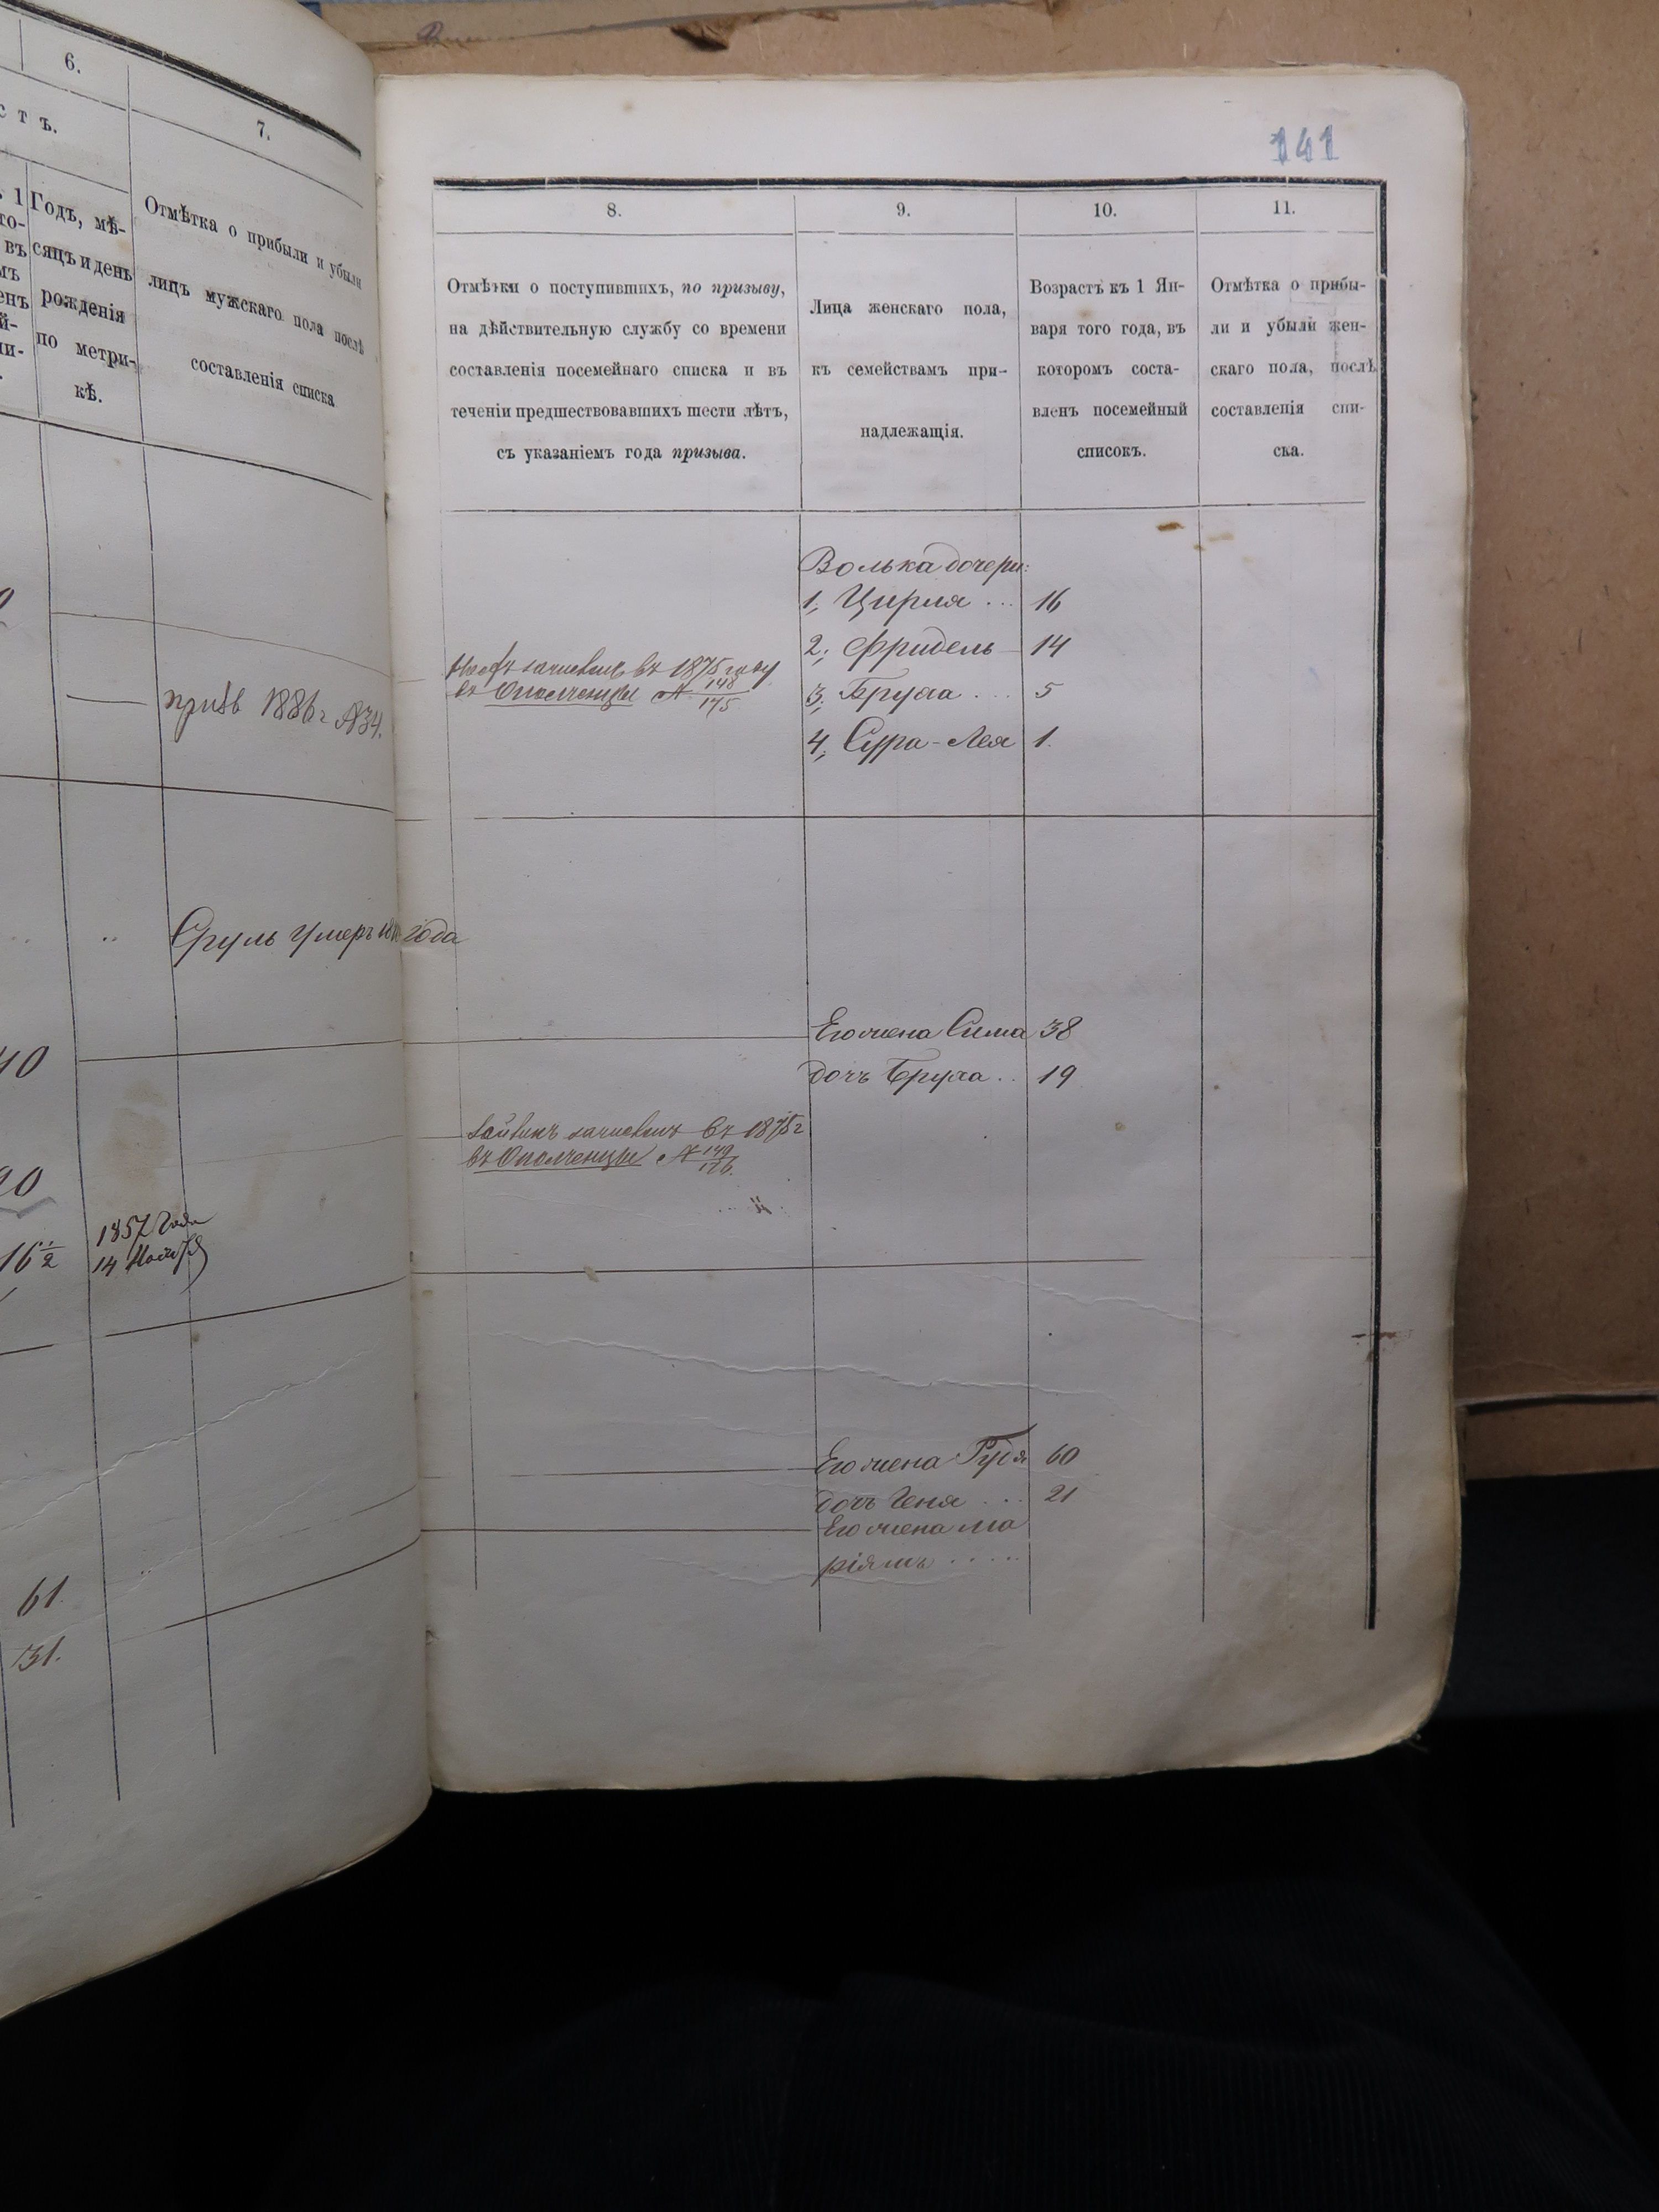 6.
с т ъ.
7.
Годъ, мѣ-
сяцъ и день
рожденія
по метри-
кѣ.
Отмѣтка о прибыли и убыли
лицъ мужскаго пола послѣ
составленія списка
1886 г. №34.
Сруль умеръ года
40
20
16 1/2
1857 года
14
61
31.
141
8.
9.
10.
11.
Отмѣтки о поступившихъ, по призыву,
на дѣйствительную службу со времени
составленія посемейнаго списка и въ
теченіи предшествовавшихъ шести лѣтъ,
съ указаніемъ года призыва.
Лица женскаго пола,
къ семействамъ при-
надлежащія.
Возрастъ къ 1 Ян-
варя того года, въ
которомъ соста-
вленъ посемейный
списокъ.
Отмѣтка о прибы-
ли и убыли жен-
скаго пола, послѣ
составленія спи-
ска.
Волька дочери:
1; Цирля ... 16
2; Фридель 14
3; Бруха ... 5
4; Сура-Лея 1.
зачисленъ въ 1875 году
въ Ополченцы № 148/175
Его жена Сима 38
дочь Бруха .. 19
зачисленъ въ 1875 г
въ Ополченцы № 149/176.
Его жена Рудя 60
дочь Геня ... 21
Его жена Ма
ріямъ .....